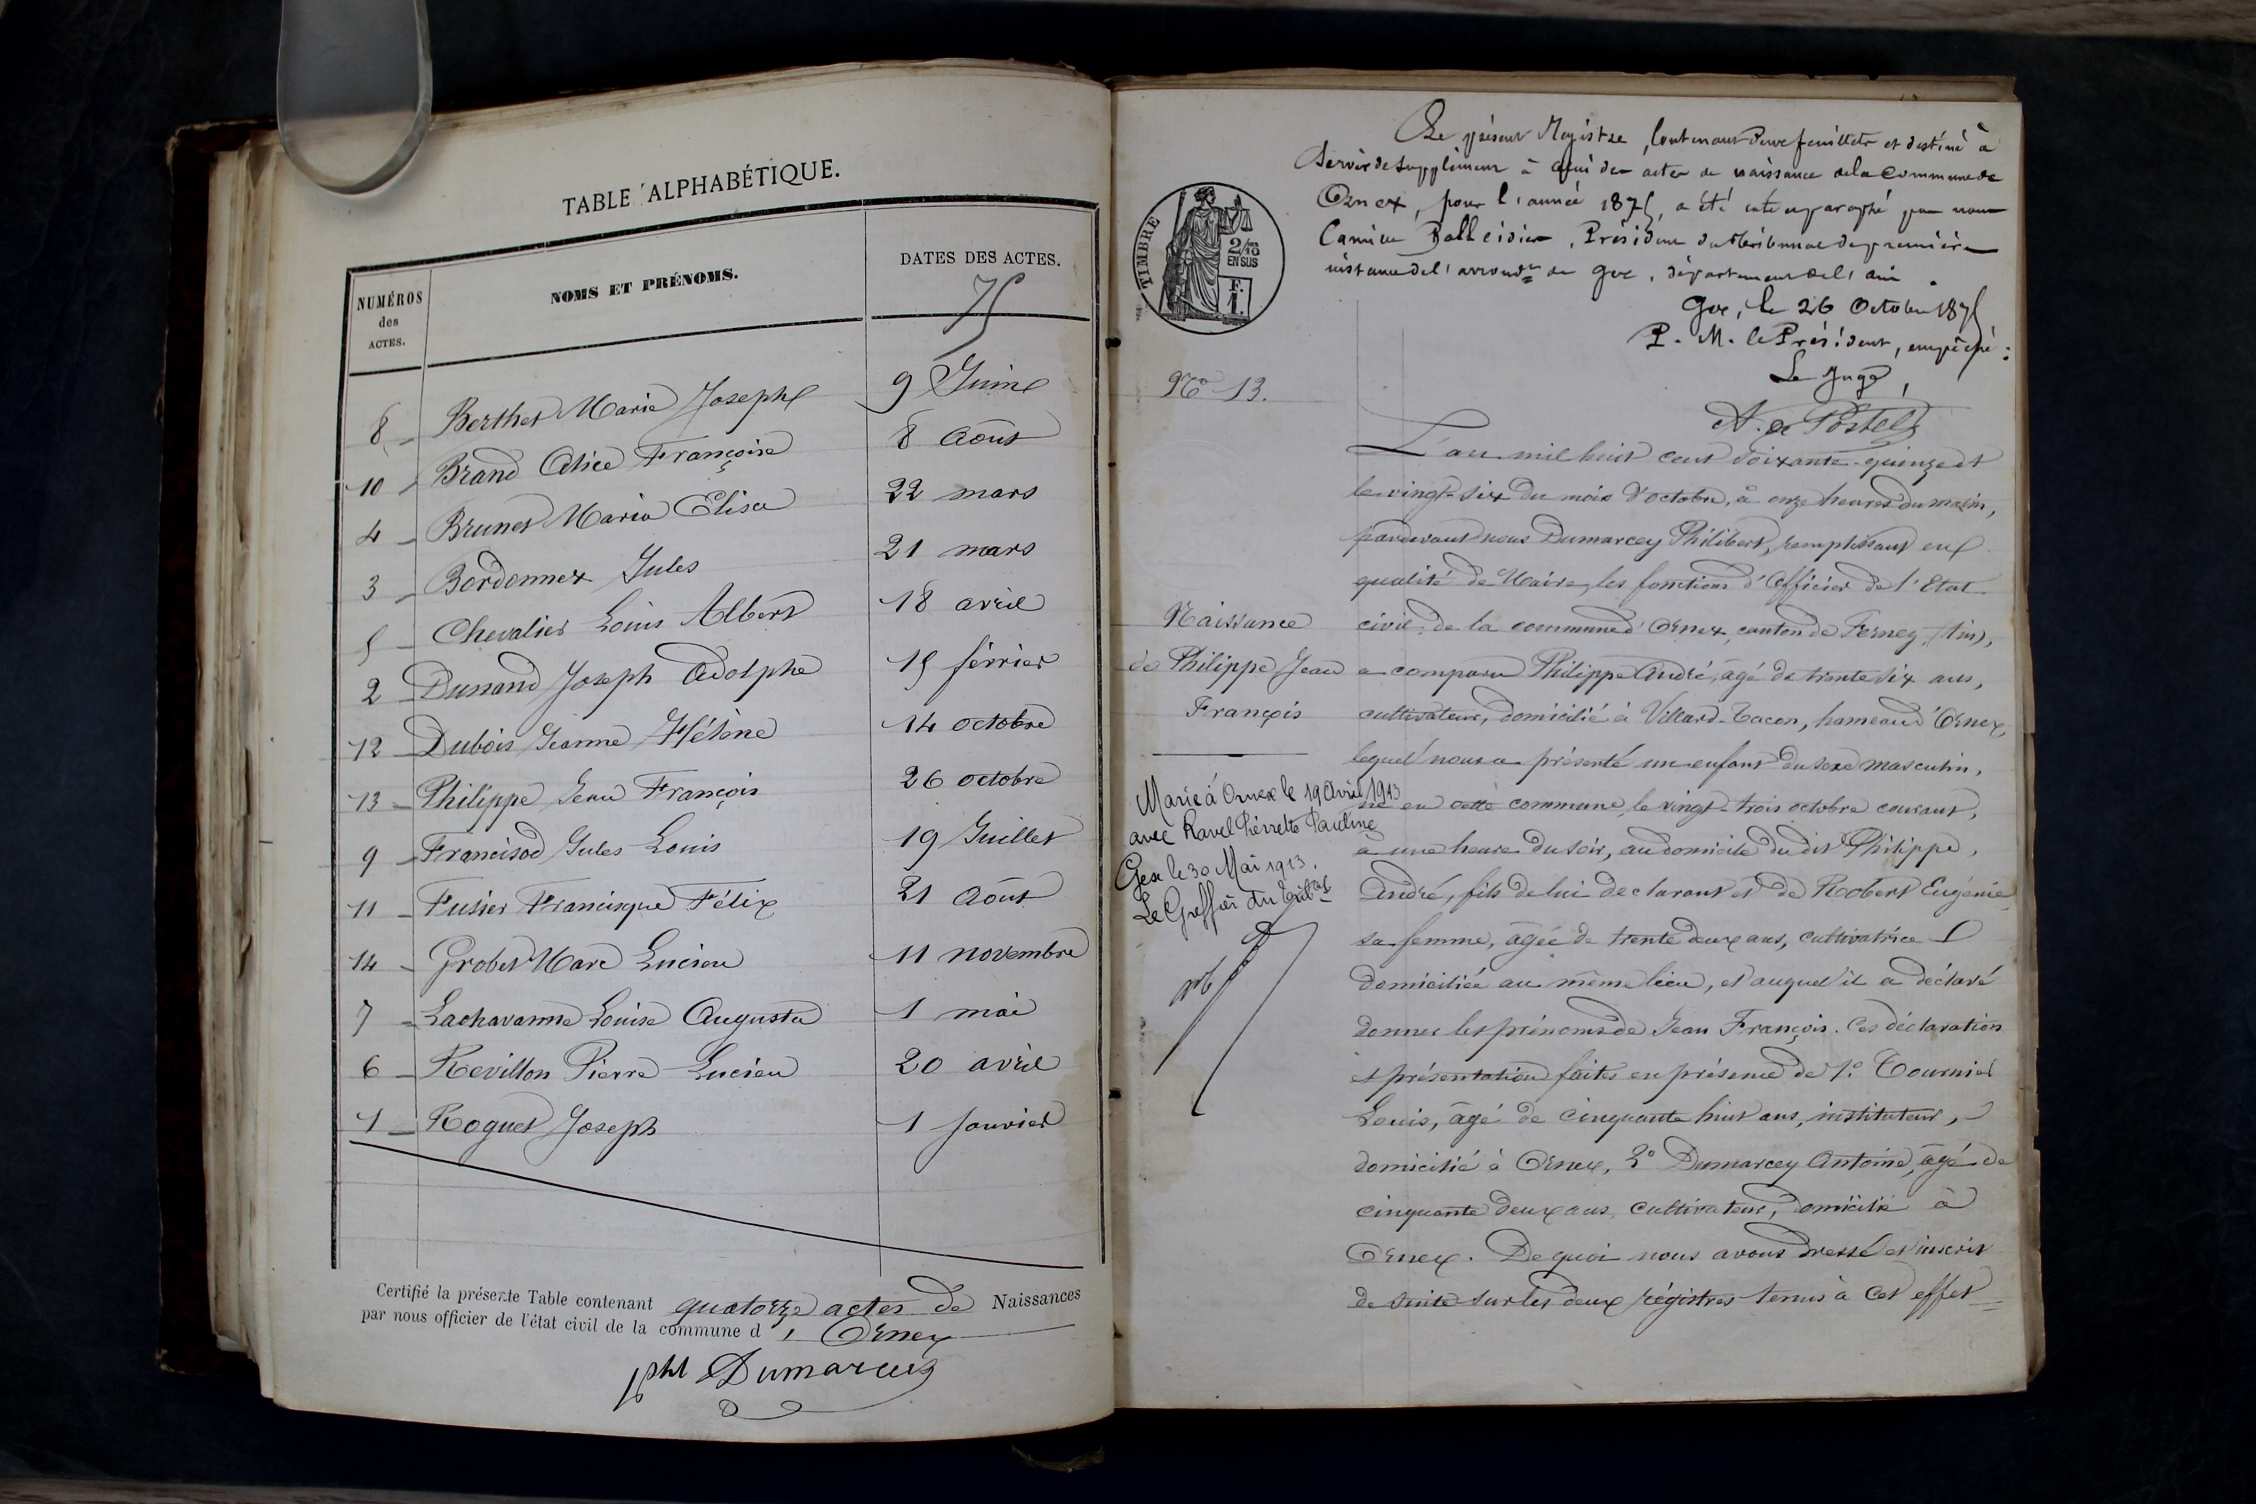 TABLE ALPHABÉTIQUE.
NUMÉROS des ACTES.
NOMS ET PRÉNOMS.
DATES DES ACTES.
75
8 Berthet Marie Joseph 9 Juin
10 Brand Alice Françoise 8 Août
4 Brunet Maria Elisa 22 mars
3 Bordonnex Jules 21 mars
5 Chevalier Louis Albert 18 avril
2 Dunand Joseph Adolphe 15 février
12 Dubois Jeanne Hélène 14 octobre
13 Philippe Jean François 26 octobre
9 Francisod Jules Louis 19 Juillet
11 Fusier Francisque Félix 21 Août
14 Grobet Marc Lucien 11 novembre
7 Lachavanne Louise Augusta 1 mai
6 Revillon Pierre Lucien 20 avril
1 Roguet Joseph 1 Janvier
Certifié la présente Table contenant quatorze actes de Naissances
par nous officier de l'état civil de la commune d' Ornex
Phl Dumarcey
Le présent Registre, contenant deux feuillets et destiné à
servir de supplément à celui des actes de naissance de la Commune de
Ornex, pour l'année 1875, a été coté et paraphé par nous
Camille Balleidier, Président du tribunal de première
instance de l'arrondt de Gex, département de l'Ain.
Gex, le 26 Octobre 1875
P. M. le Président, empêché :
Le Juge,
TIMBRE
2/10 EN SUS
F.
1.
No 13.
Naissance
de Philippe Jean
François
Marié à Ornex le 19 Avril 1913
avec Ravel Pierrette Pauline
Gex le 30 Mai 1913.
Le Greffier du Tribal
L'an mil huit cent soixante-quinze et
le vingt-six du mois d'octobre, à onze heures du matin,
pardevant nous Dumarcey Philibert, remplissant en
qualité de Maire, les fonctions d'Officier de l'Etat
civil de la commune d'Ornex, canton de Ferney (Ain),
a comparu Philippe André, âgé de trente six ans,
cultivateur, domicilié à Villard-Tacon, hameau d'Ornex,
lequel nous a présenté un enfant du sexe masculin,
né en cette commune, le vingt-trois octobre courant,
à une heure du soir, au domicile du dit Philippe,
André, fils de lui declarant et de Robert Eugénie
sa femme, âgée de trente deux ans, cultivatrice
domiciliée au même lieu, et auquel il a déclaré
donner les prénoms de Jean François. Ces déclaration
et présentation faites en présence de 1º Tournier
Louis, âgé de cinquante huit ans, instituteur,
domicilié à Ornex, 2º Dumarcey Antoine, âgé de
cinquante deux ans, cultivateur, domicilié à
Ornex. De quoi nous avons dressé et inscrit
de suite sur les deux régistres tenus à cet effet